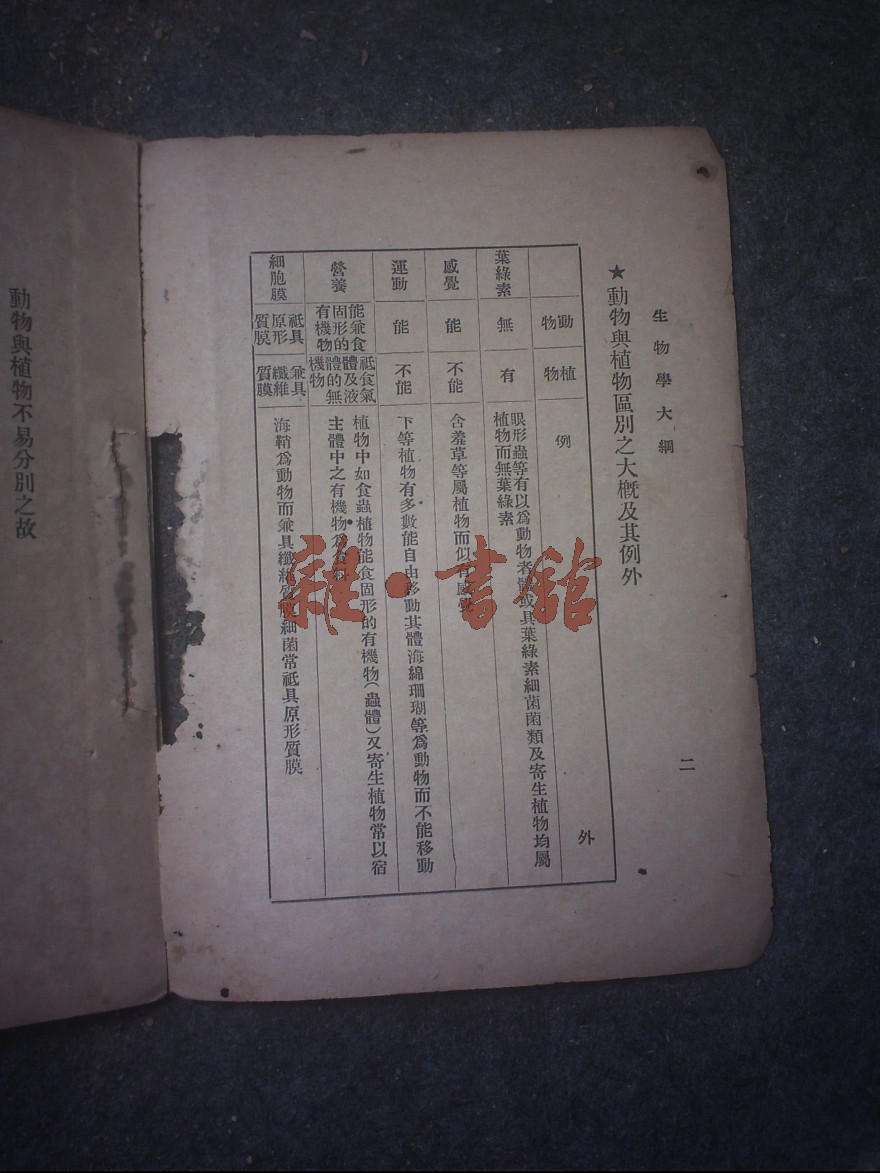 生物學大綱
二
★動物與植物區別之大概及其例外
動物
植物
例外
葉綠素
無
有
眼形蟲等有以爲動物者體或具葉綠素細菌菌類及寄生植物均屬
植物而無葉綠素
感覺
能
不能
含羞草等屬植物而似有感覺
運動
能
不能
下等植物有多數能自由移動其體海綿珊瑚等爲動物而不能移動
營養
能兼食
固形的
有機物
祇食氣
體及液
體的無
機物
植物中如食蟲植物能食固形的有機物(蟲體)又寄生植物常以宿
主體中之有機物爲食料
細胞膜
祇具
原形
質膜
兼具
纖維
質膜
海鞘爲動物而兼具纖維質膜細菌常祇具原形質膜
動物與植物不易分別之故
雜·書館